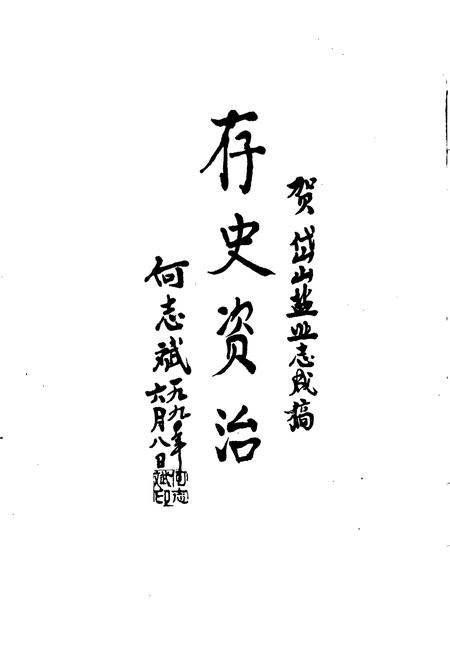 贺岱山盐业志成稿
存史资治
何志斌
一九九〇年
六月八日
何志斌印